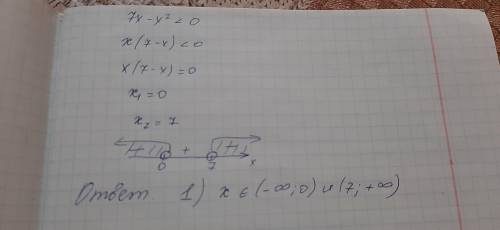 7x-x² < 0
x(7-x) < 0
x(7-x) = 0
x₁ = 0
x₂ = 7
+
0 7 x
Ответ 1) x ∈ (-∞; 0) ∪ (7; +∞)